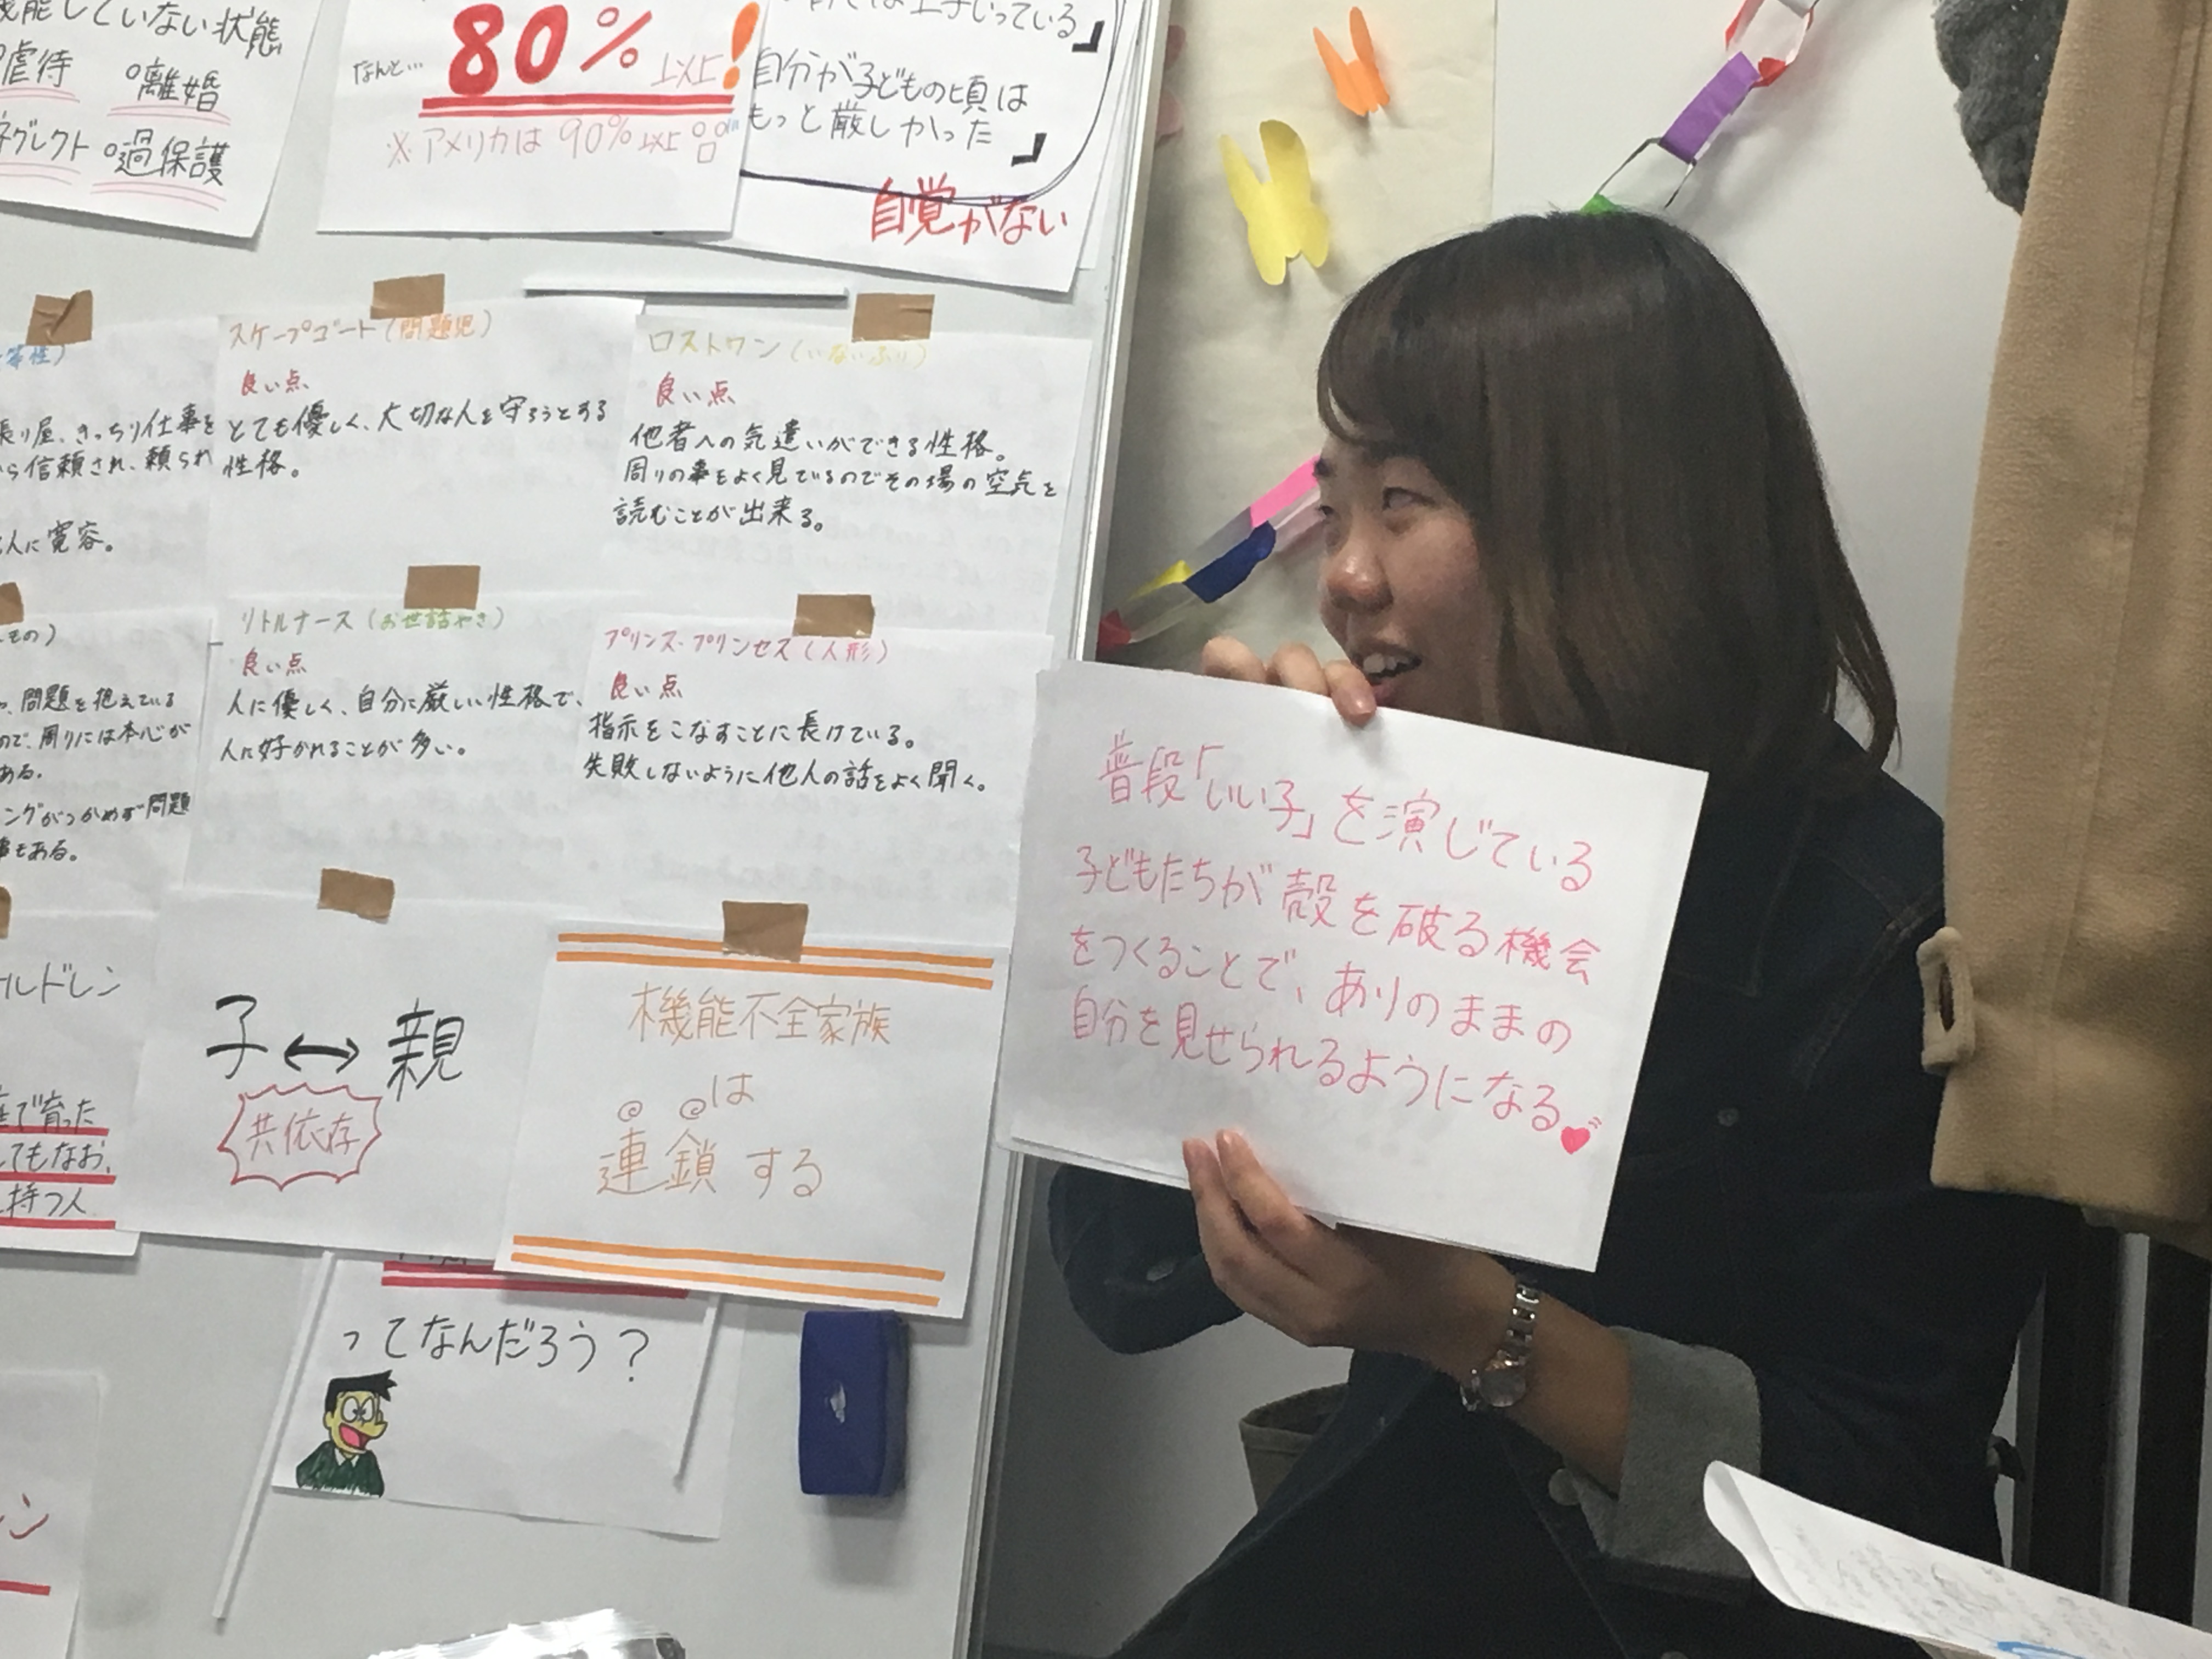 能していない状態
虐待 °離婚
ネグレクト °過保護
なんと… 80%以上!
※アメリカは90%以上
自分が子どもの頃は
もっと厳しかった」
自覚がない
スケープゴート(問題児)
良い点
とても優しく、大切な人を守ろうとする
性格。
ロストワン(いないふり)
良い点
他者への気遣いができる性格。
周りの事をよく見ているのでその場の空気を
読むことが出来る。
等性)
張り屋、きっちり仕事を
から信頼され、頼られ
人に寛容。
リトルナース(お世話やき)
良い点
人に優しく、自分に厳しい性格で、
人に好かれることが多い。
プリンス・プリンセス(人形)
良い点
指示をこなすことに長けている。
失敗しないように他人の話をよく聞く。
もの)
、問題を抱えている
ので、周りには本心が
ある。
ングがつかめず問題
事もある。
ルドレン
で育った
てもなお、
持つ人
子↔親
共依存
機能不全家族
は
連鎖する
ってなんだろう?
ン
普段「いい子」を演じている
子どもたちが殻を破る機会
をつくることで、ありのままの
自分を見せられるようになる